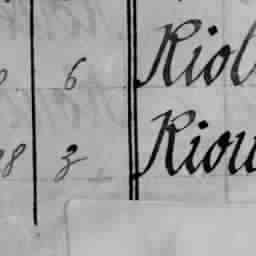 6 Riol
8 3 Riou